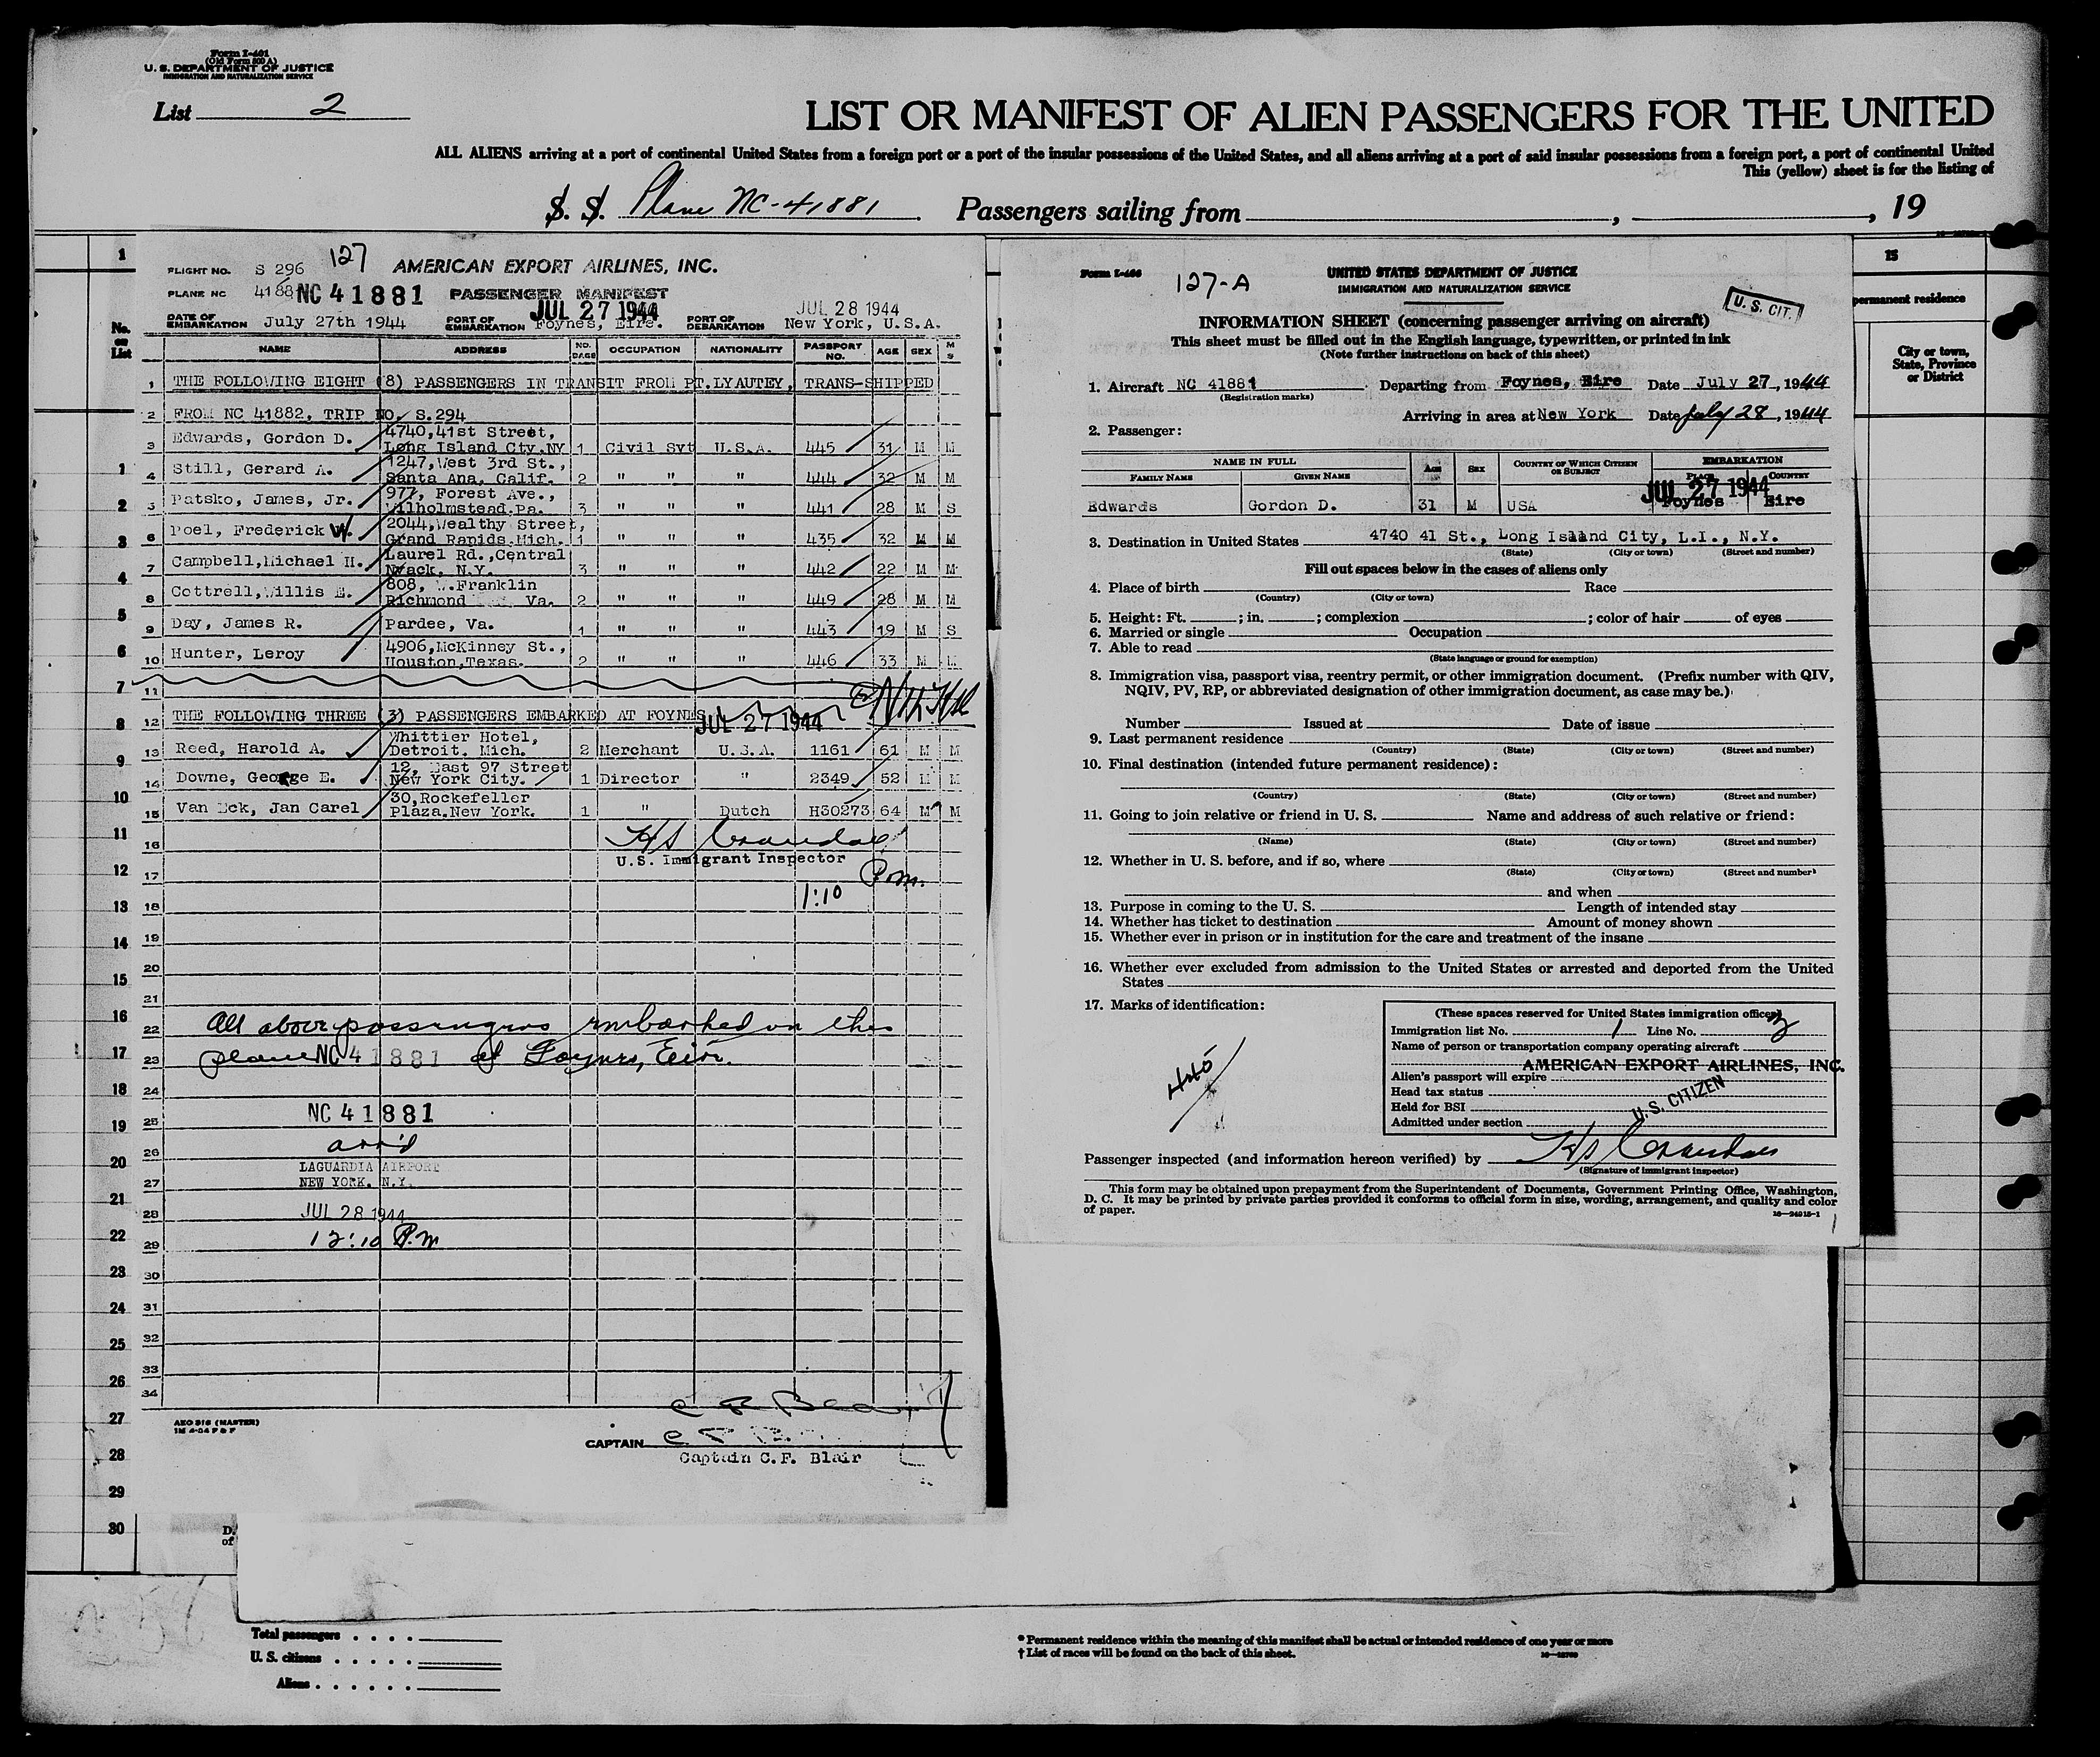 Form I-401
(Old Form 500 A)
U. S. DEPARTMENT OF JUSTICE
IMMIGRATION AND NATURALIZATION SERVICE
List 2
LIST OR MANIFEST OF ALIEN PASSENGERS FOR THE UNITED
ALL ALIENS arriving at a port of continental United States from a foreign port or a port of the insular possessions of the United States, and all aliens arriving at a port of said insular possessions from a foreign port, a port of continental United
This (yellow) sheet is for the listing of
S. S. Plane NC-41881 Passengers sailing from , , 19
No. on List
1
1
2
3
4
5
6
7
8
9
10
11
12
13
14
15
16
17
18
19
20
21
22
23
24
25
26
27
28
29
30
127
FLIGHT NO. S 296 AMERICAN EXPORT AIRLINES, INC.
PLANE NC 4188 NC 41881 PASSENGER MANIFEST
JUL 27 1944 JUL 28 1944
DATE OF EMBARKATION July 27th 1944 PORT OF EMBARKATION Foynes, Eire. PORT OF DEBARKATION New York, U.S.A.
NAME ADDRESS NO. BAGS OCCUPATION NATIONALITY PASSPORT NO. AGE SEX M S
1 THE FOLLOWING EIGHT (8) PASSENGERS IN TRANSIT FROM PT.LYAUTEY, TRANS-SHIPPED
2 FROM NC 41882, TRIP NO. S.294
3 Edwards, Gordon D. 4740,41st Street, Long Island Cty.NY 1 Civil Svt U.S.A. 445 31 M M
4 Still, Gerard A. 1247,West 3rd St., Santa Ana, Calif. 2 " " " 444 32 M M
5 Patsko, James, Jr. 977, Forest Ave., Wilholmstead.Pa. 3 " " " 441 28 M S
6 Poel, Frederick W. 2044,Wealthy Street, Grand Rapids.Mich. 1 " " " 435 32 M M
7 Campbell,Michael H. Laurel Rd.,Central Nyack, N.Y. 3 " " " 442 22 M M
8 Cottrell,Willis E. 808, W.Franklin Richmond Va. 2 " " " 449 28 M M
9 Day, James R. Pardee, Va. 1 " " " 443 19 M S
10 Hunter, Leroy 4906,McKinney St., Houston,Texas. 2 " " " 446 33 M M
11
12 THE FOLLOWING THREE (3) PASSENGERS EMBARKED AT FOYNES JUL 27 1944
13 Reed, Harold A. Whittier Hotel, Detroit. Mich. 2 Merchant U.S.A. 1161 61 M M
14 Downe, George E. 12, East 97 Street New York City. 1 Director " 2349 52 M M
15 Van Eck, Jan Carel 30,Rockefeller Plaza.New York. 1 " Dutch H30273 64 M M
16
HS Crandall
U.S. Immigrant Inspector
17
P.m.
18 1:10
19
20
21
22 All above passengers embarked on this
23 plane NC 41881 at Foynes, Eire.
24
25 NC 41881
26 arr'd
LAGUARDIA AIRPORT
27 NEW YORK. N.Y.
28 JUL 28 1944
29 12:10 P.m
30
31
32
33
34
AEO 316 (MASTER)
CAPTAIN
Captain C.F. Blair
Form I-466
127-A
UNITED STATES DEPARTMENT OF JUSTICE
IMMIGRATION AND NATURALIZATION SERVICE
U. S. CIT.
INFORMATION SHEET (concerning passenger arriving on aircraft)
This sheet must be filled out in the English language, typewritten, or printed in ink
(Note further instructions on back of this sheet)
1. Aircraft NC 41881 Departing from Foynes, Eire Date July 27, 1944
(Registration marks)
Arriving in area at New York Date July 28, 1944
2. Passenger:
NAME IN FULL Age Sex COUNTRY OF WHICH CITIZEN OR SUBJECT EMBARKATION
FAMILY NAME GIVEN NAME PLACE COUNTRY
JUL 27 1944
Edwards Gordon D. 31 M USA Foynes Eire
3. Destination in United States 4740 41 St., Long Island City, L.I., N.Y.
(State) (City or town) (Street and number)
Fill out spaces below in the cases of aliens only
4. Place of birth Race
(Country) (City or town)
5. Height: Ft. ; in. ; complexion ; color of hair of eyes
6. Married or single Occupation
7. Able to read
(State language or ground for exemption)
8. Immigration visa, passport visa, reentry permit, or other immigration document. (Prefix number with QIV,
NQIV, PV, RP, or abbreviated designation of other immigration document, as case may be.)
Number Issued at Date of issue
9. Last permanent residence
(Country) (State) (City or town) (Street and number)
10. Final destination (intended future permanent residence):
(Country) (State) (City or town) (Street and number)
11. Going to join relative or friend in U. S. Name and address of such relative or friend:
(Name) (State) (City or town) (Street and number)
12. Whether in U. S. before, and if so, where
(State) (City or town) (Street and number)
and when
13. Purpose in coming to the U. S. Length of intended stay
14. Whether has ticket to destination Amount of money shown
15. Whether ever in prison or in institution for the care and treatment of the insane
16. Whether ever excluded from admission to the United States or arrested and deported from the United
States
17. Marks of identification:
445
(These spaces reserved for United States immigration officer)
Immigration list No. 1 Line No. 3
Name of person or transportation company operating aircraft
AMERICAN EXPORT AIRLINES, INC.
Alien's passport will expire
Head tax status
Held for BSI
Admitted under section
U. S. CITIZEN
Passenger inspected (and information hereon verified) by HS Crandall
(Signature of immigrant inspector)
This form may be obtained upon prepayment from the Superintendent of Documents, Government Printing Office, Washington,
D. C. It may be printed by private parties provided it conforms to official form in size, wording, arrangement, and quality and color
of paper.
16—24915-1
15
permanent residence
City or town, State, Province or District
D.
of
Total passengers . . . .
U. S. citizens . . . . .
Aliens . . . . . .
* Permanent residence within the meaning of this manifest shall be actual or intended residence of one year or more
† List of races will be found on the back of this sheet.